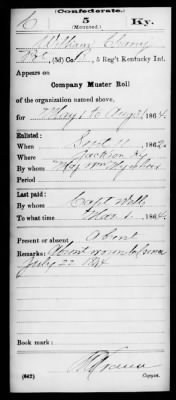 (Confederate.)
C 5 Ky.
(Mounted.)
William
Co. 5 Reg't Kentucky Inf.
Appears on
Company Muster Roll
of the organization named above,
for May 1 to Aug 31, 1864.
Enlisted:
When Sept 11, 1862.
Where Jackson Ky
By whom
Period
Last paid:
By whom Capt Webb
To what time Mar 1, 1864.
Present or absent Absent
Remarks: Absent
July 22 1864
Book mark:
(642) Copyist.